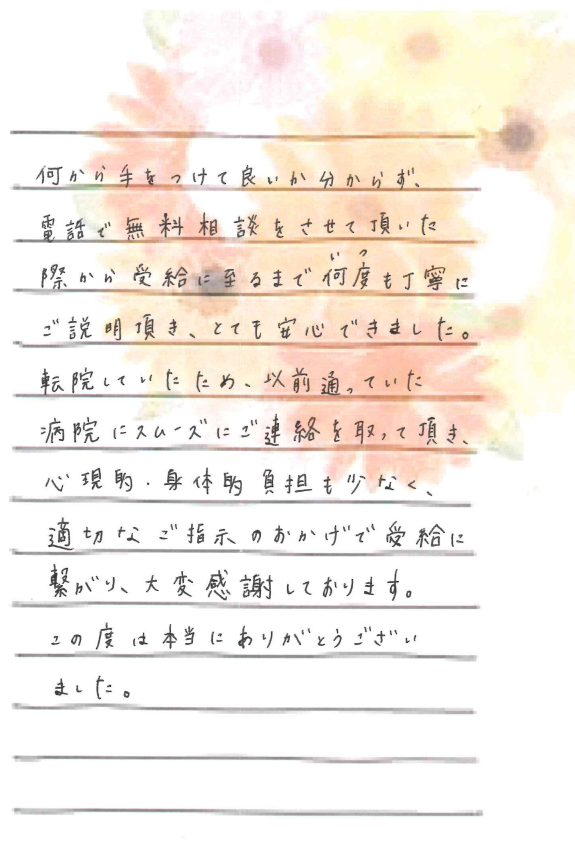 何から手をつけて良いか分からず、
電話で無料相談をさせて頂いた
際から受給に至るまで何度も丁寧に
ご説明頂き、とても安心できました。
転院していたため、以前通っていた
病院にスムーズにご連絡を取って頂き、
心現的・身体的負担も少なく、
適切なご指示のおかげで受給に
繋がり、大変感謝しております。
この度は本当にありがとうござい
ました。